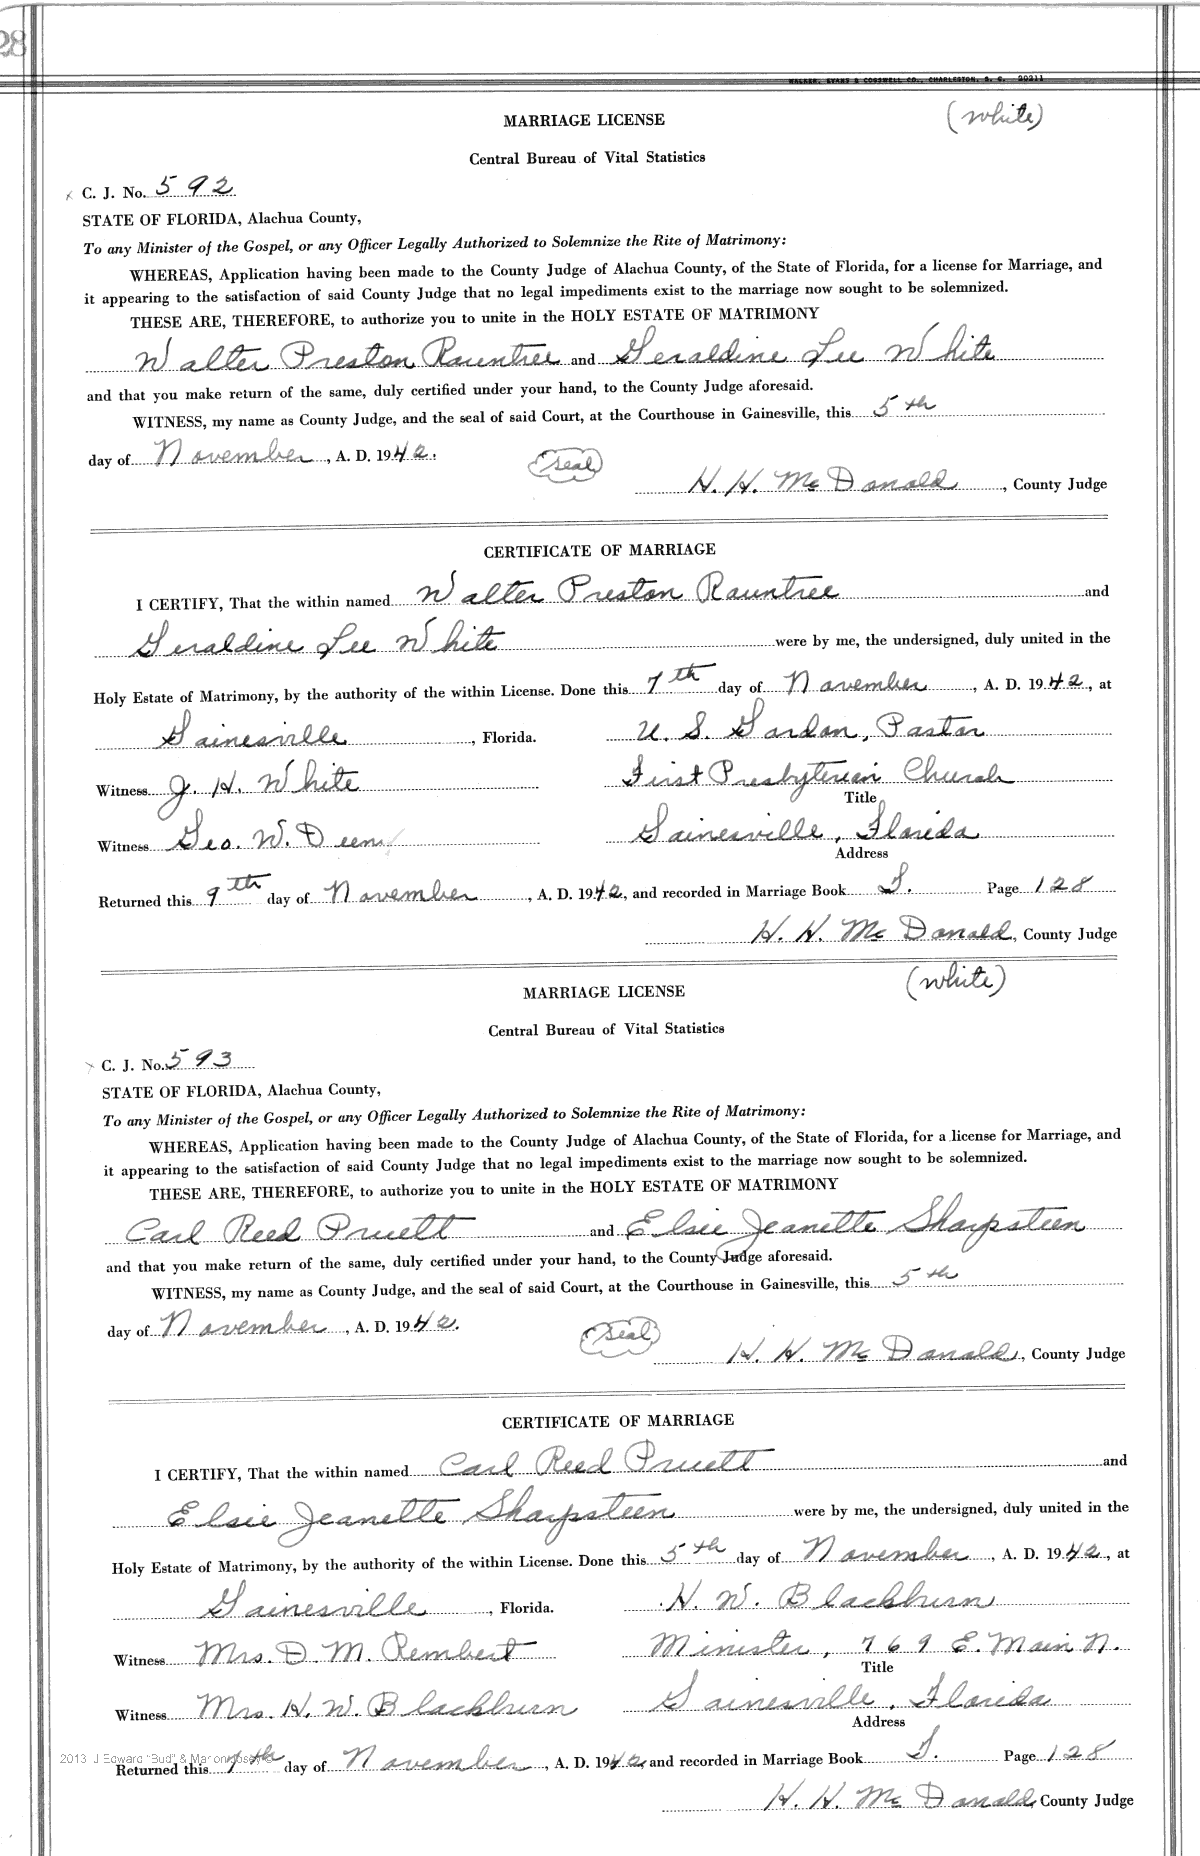 28
WALKER, EVANS & COGSWELL CO., CHARLESTON, S. C. 20211
MARRIAGE LICENSE (white)
Central Bureau of Vital Statistics
C. J. No. 592
STATE OF FLORIDA, Alachua County,
To any Minister of the Gospel, or any Officer Legally Authorized to Solemnize the Rite of Matrimony:
WHEREAS, Application having been made to the County Judge of Alachua County, of the State of Florida, for a license for Marriage, and
it appearing to the satisfaction of said County Judge that no legal impediments exist to the marriage now sought to be solemnized.
THESE ARE, THEREFORE, to authorize you to unite in the HOLY ESTATE OF MATRIMONY
Walter Preston Rauntree and Geraldine Lee White
and that you make return of the same, duly certified under your hand, to the County Judge aforesaid.
WITNESS, my name as County Judge, and the seal of said Court, at the Courthouse in Gainesville, this 5th
day of November, A. D. 1942.
Seal H. H. McDonald, County Judge
CERTIFICATE OF MARRIAGE
I CERTIFY, That the within named Walter Preston Rauntree and
Geraldine Lee White were by me, the undersigned, duly united in the
Holy Estate of Matrimony, by the authority of the within License. Done this 7th day of November, A. D. 1942, at
Gainesville, Florida. U. S. Gordon, Pastor
Witness J. H. White First Presbyterian Church
Title
Witness Geo. W. Deen Gainesville, Florida
Address
Returned this 9th day of November, A. D. 1942, and recorded in Marriage Book T. Page 128
H. H. McDonald, County Judge
MARRIAGE LICENSE (white)
Central Bureau of Vital Statistics
C. J. No. 593
STATE OF FLORIDA, Alachua County,
To any Minister of the Gospel, or any Officer Legally Authorized to Solemnize the Rite of Matrimony:
WHEREAS, Application having been made to the County Judge of Alachua County, of the State of Florida, for a license for Marriage, and
it appearing to the satisfaction of said County Judge that no legal impediments exist to the marriage now sought to be solemnized.
THESE ARE, THEREFORE, to authorize you to unite in the HOLY ESTATE OF MATRIMONY
Carl Reed Pruett and Elsie Jeanette Sharpsteen
and that you make return of the same, duly certified under your hand, to the County Judge aforesaid.
WITNESS, my name as County Judge, and the seal of said Court, at the Courthouse in Gainesville, this 5th
day of November, A. D. 1942.
Seal H. H. McDonald, County Judge
CERTIFICATE OF MARRIAGE
I CERTIFY, That the within named Carl Reed Pruett and
Elsie Jeanette Sharpsteen were by me, the undersigned, duly united in the
Holy Estate of Matrimony, by the authority of the within License. Done this 5th day of November, A. D. 1942, at
Gainesville, Florida. H. W. Blackburn
Witness Mrs. D. M. Rembert Minister, 769 E. Main N.
Title
Witness Mrs. H. W. Blackburn Gainesville, Florida
Address
2013 J Edward "Bud" & Marion Josey ©
Returned this 7th day of November, A. D. 1942, and recorded in Marriage Book T. Page 128
H. H. McDonald, County Judge